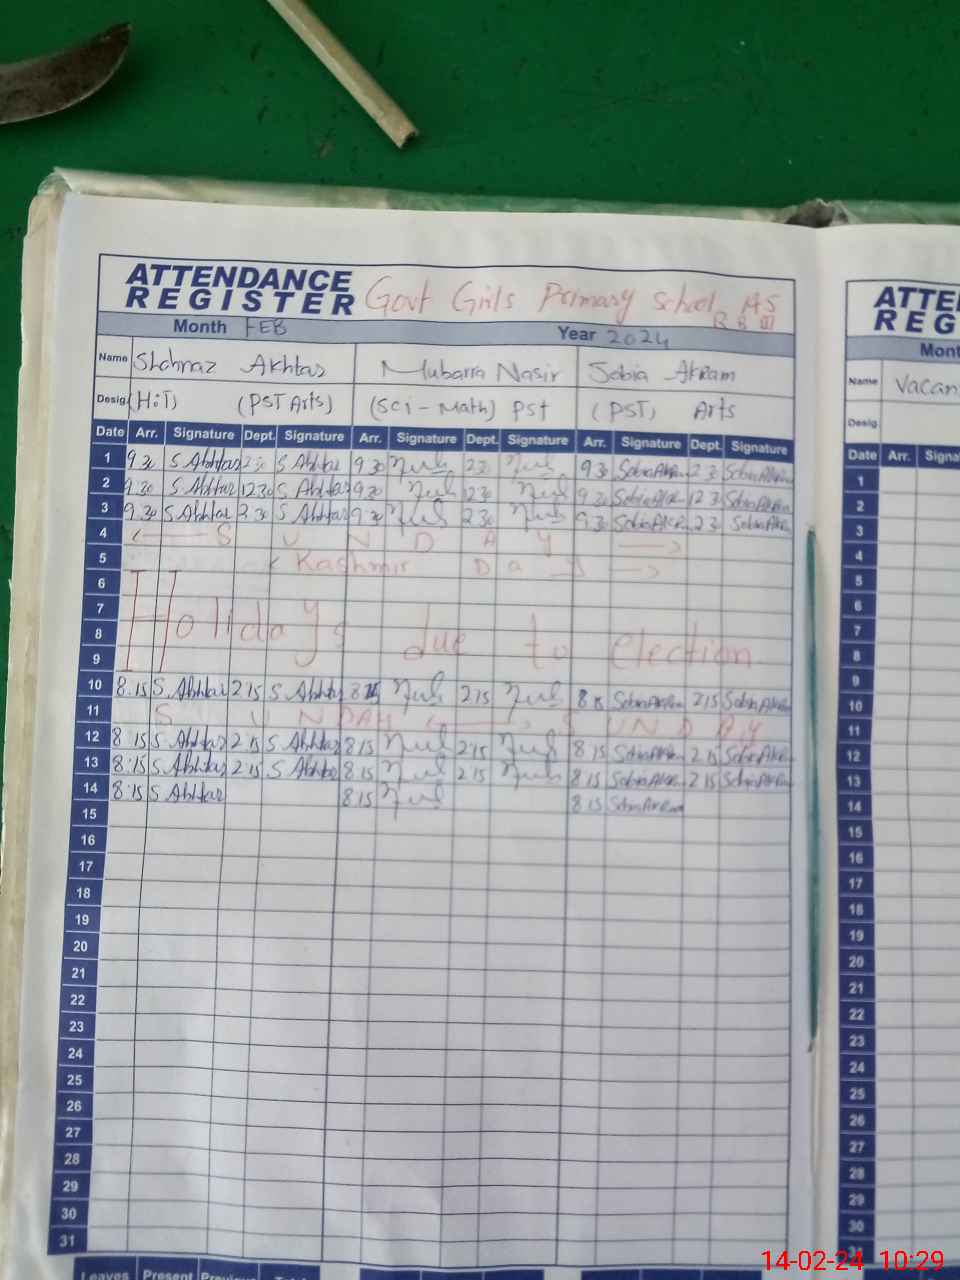 ATTENDANCE REGISTER Govt Girls Primary School 145 R B III
Month FEB Year 2024
Name Shahnaz Akhtar Mubarra Nasir Sobia Akram
Desig. (H:T) (PST Arts) (Sci - Math) Pst (PST) Arts
Date Arr. Signature Dept. Signature Arr. Signature Dept. Signature Arr. Signature Dept. Signature
1 9 30 S Akhtar 2 30 S Akhtar 9 30 2 30 9 30 Sobia Akram 2 30 Sobia Akram
2 9 30 S Akhtar 12 30 S Akhtar 9 30 12 30 9 30 Sobia Akram 12 30 Sobia Akram
3 9.30 S Akhtar 2 30 S Akhtar 9 30 2 30 9 30 Sobia Akram 2 30 Sobia Akram
4 S U N D A Y
5 Kashmir Day
6
7 Holidays due to election
8
9
10 8:15 S Akhtar 2 15 S Akhtar 8 15 2 15 8 15 Sobia Akram 2 15 Sobia Akram
11 S U N DAY S U N D A Y
12 8 15 S Akhtar 2 15 S Akhtar 8 15 2 15 8 15 Sobia Akram 2 15 Sobia Akram
13 8:15 S Akhtar 2 15 S Akhtar 8 15 2 15 8 15 Sobia Akram 2 15 Sobia Akram
14 8:15 S Akhtar 8 15 8 15 Sobia Akram
15
16
17
18
19
20
21
22
23
24
25
26
27
28
29
30
31
Leaves Present
ATTE
REG
Mont
Name Vacan
Desig.
Date Arr. Signa
1
2
3
4
5
6
7
8
9
10
11
12
13
14
15
16
17
18
19
20
21
22
23
24
25
26
27
28
29
30
31
14-02-24 10:29